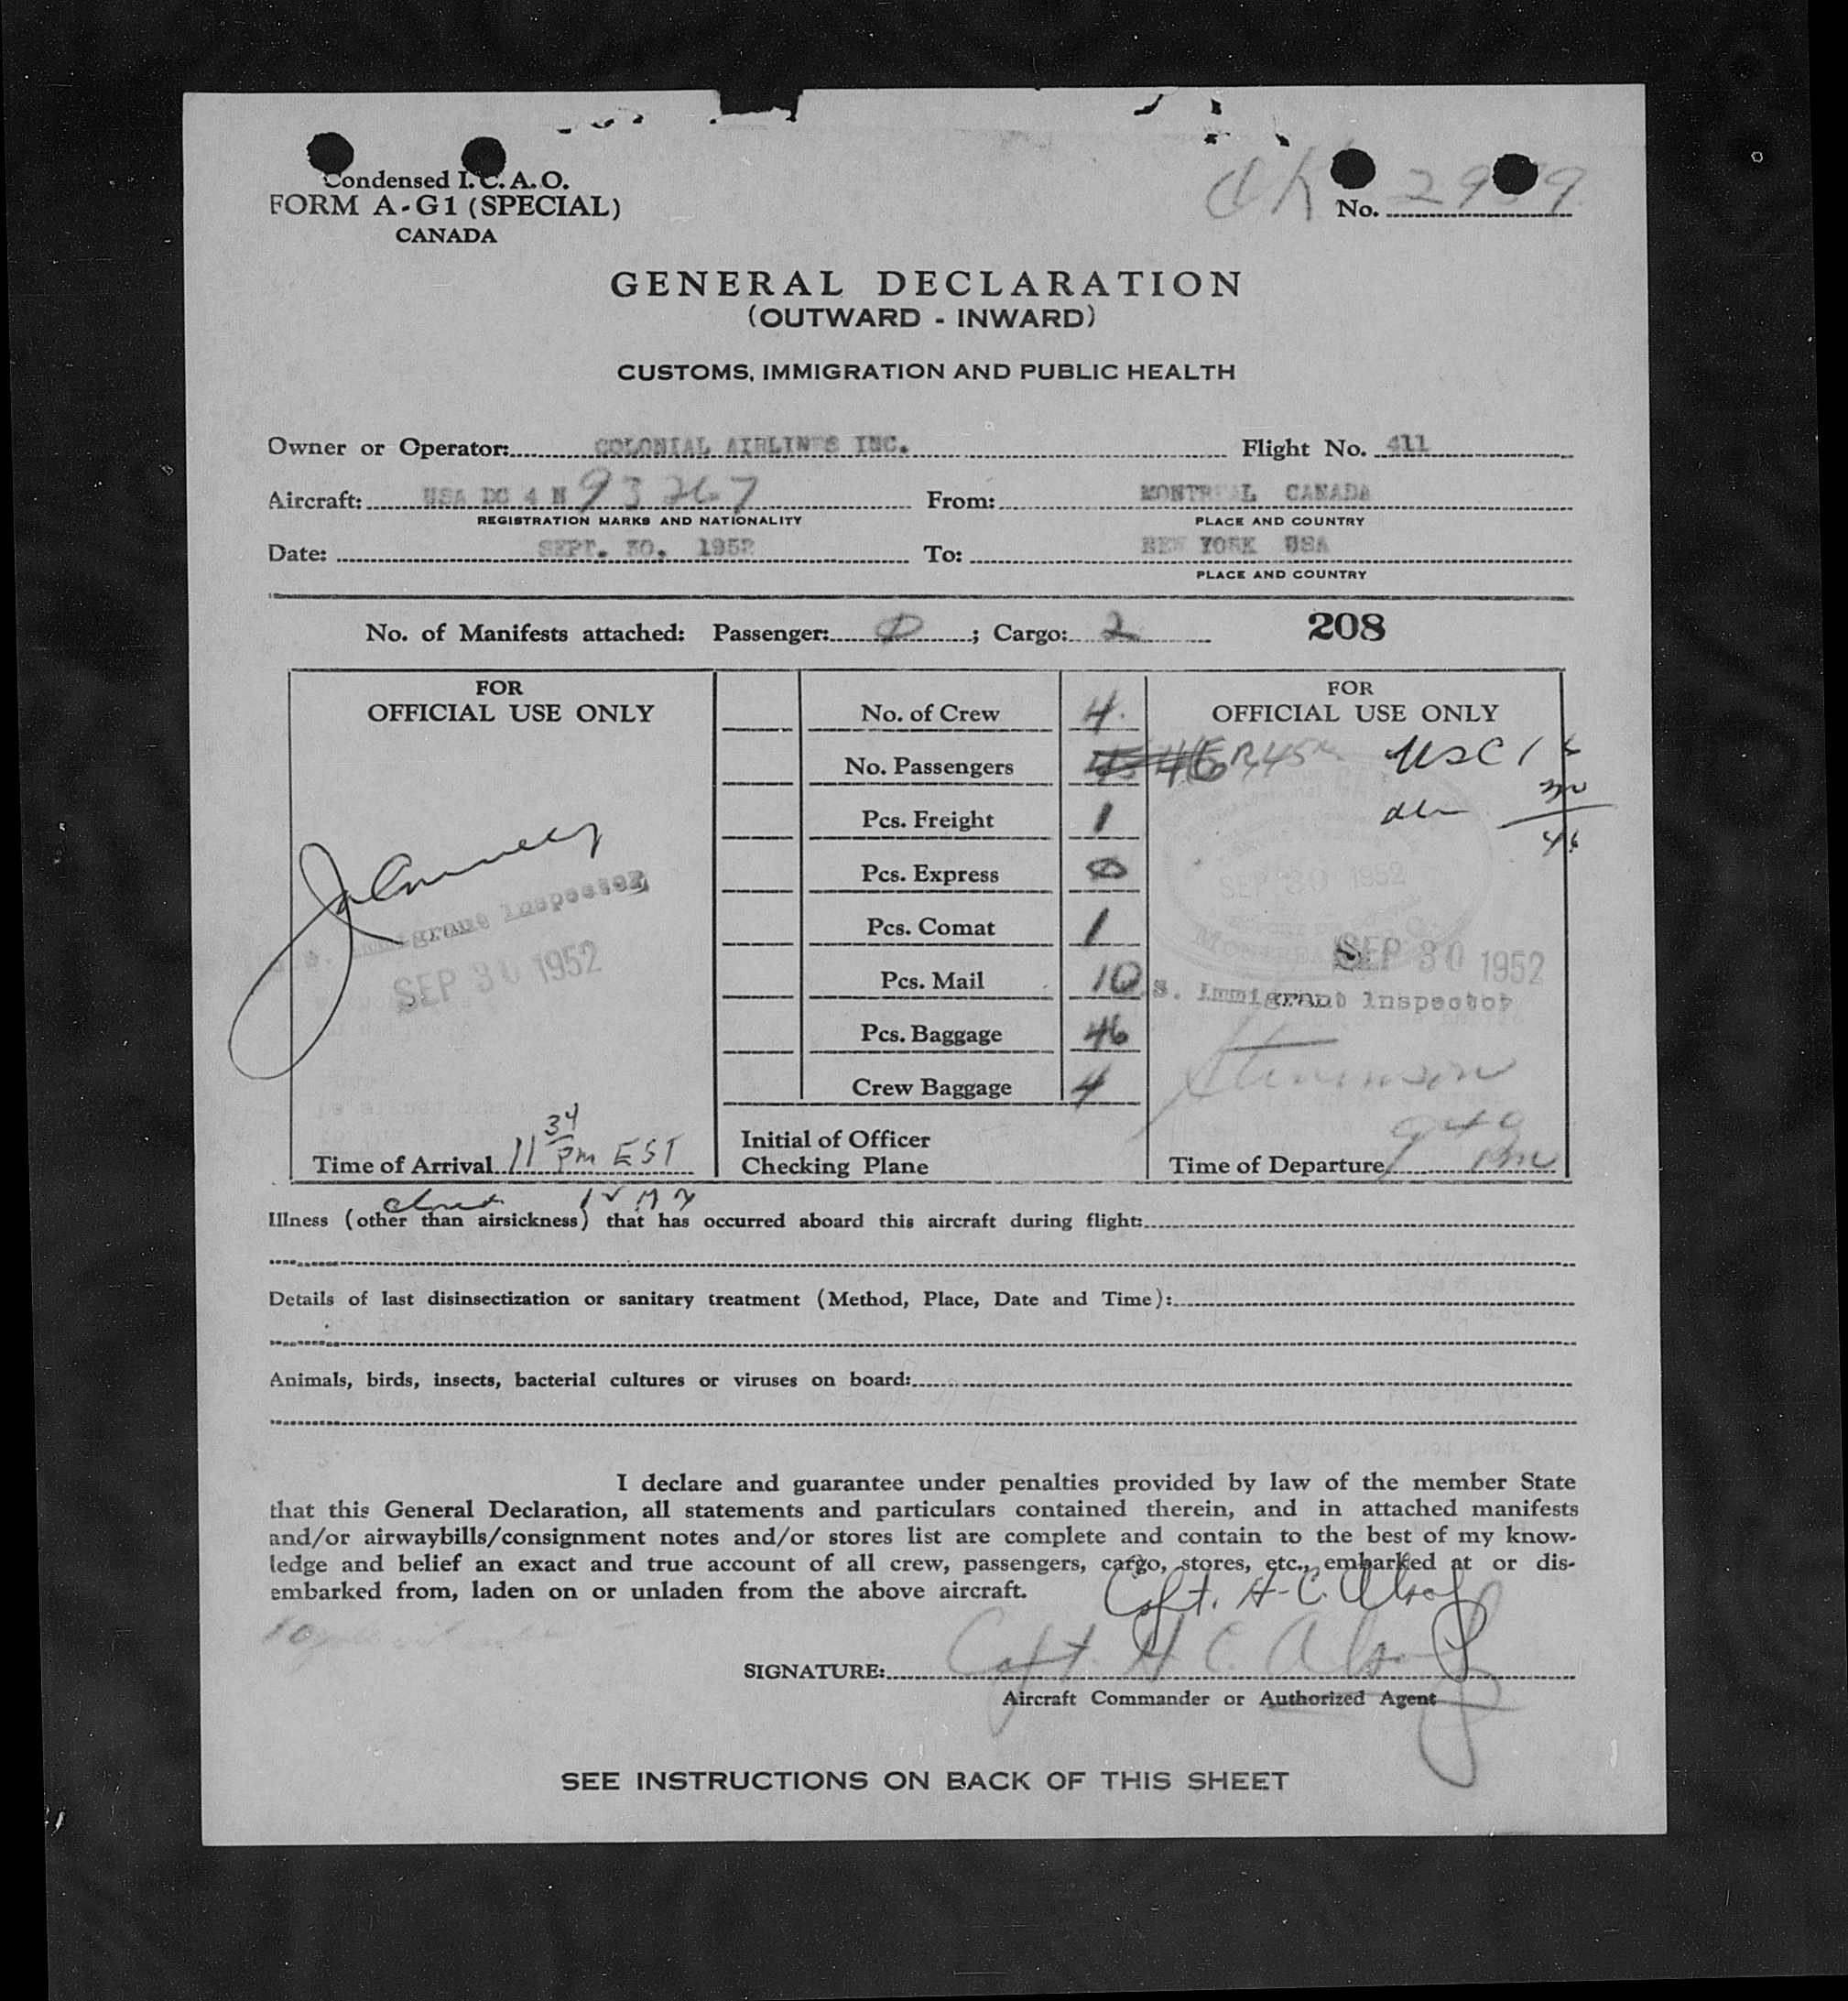 Condensed I.C.A.O.
FORM A-G1 (SPECIAL)
CANADA
No. 2959
GENERAL DECLARATION
(OUTWARD - INWARD)
CUSTOMS, IMMIGRATION AND PUBLIC HEALTH
Owner or Operator: COLONIAL AIRLINES INC. Flight No. 411
Aircraft: USA DC 4 N 93267 From: MONTREAL CANADA
REGISTRATION MARKS AND NATIONALITY PLACE AND COUNTRY
Date: SEPT. 30, 1952 To: NEW YORK USA
PLACE AND COUNTRY
No. of Manifests attached: Passenger: 0; Cargo: 2 208
FOR
OFFICIAL USE ONLY
SEP 30 1952
Immigrant Inspector
Time of Arrival 11 34 pm EST
No. of Crew 4
No. Passengers 45 46 45
Pcs. Freight 1
Pcs. Express 0
Pcs. Comat 1
Pcs. Mail 10
Pcs. Baggage 46
Crew Baggage 4
Initial of Officer
Checking Plane
FOR
OFFICIAL USE ONLY
USC 16
30
46
SEP 30 1952
MONTREAL
SEP 30 1952
S. Immigrant Inspector
Stevenson
Time of Departure 9 49 PM
Illness (other than airsickness) that has occurred aboard this aircraft during flight:
Details of last disinsectization or sanitary treatment (Method, Place, Date and Time):
Animals, birds, insects, bacterial cultures or viruses on board:
I declare and guarantee under penalties provided by law of the member State
that this General Declaration, all statements and particulars contained therein, and in attached manifests
and/or airwaybills/consignment notes and/or stores list are complete and contain to the best of my know-
ledge and belief an exact and true account of all crew, passengers, cargo, stores, etc., embarked at or dis-
embarked from, laden on or unladen from the above aircraft.
Capt. H. C.
SIGNATURE: Capt. H C
Aircraft Commander or Authorized Agent
SEE INSTRUCTIONS ON BACK OF THIS SHEET